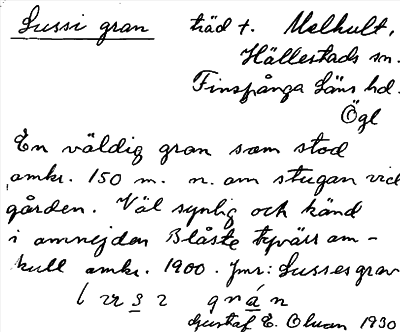 Lussi gran träd †. Melhult,
Hällestads sn.
Finspånga läns hd.
Ögl
En väldig gran som stod
omkr. 150 m. n. om stugan vid
gården. Väl synlig och känd
i omnejden Blåste tyvärr om-
kull omkr. 1900. Jmr: Lusses grav
Gustaf E. Olvan 1930